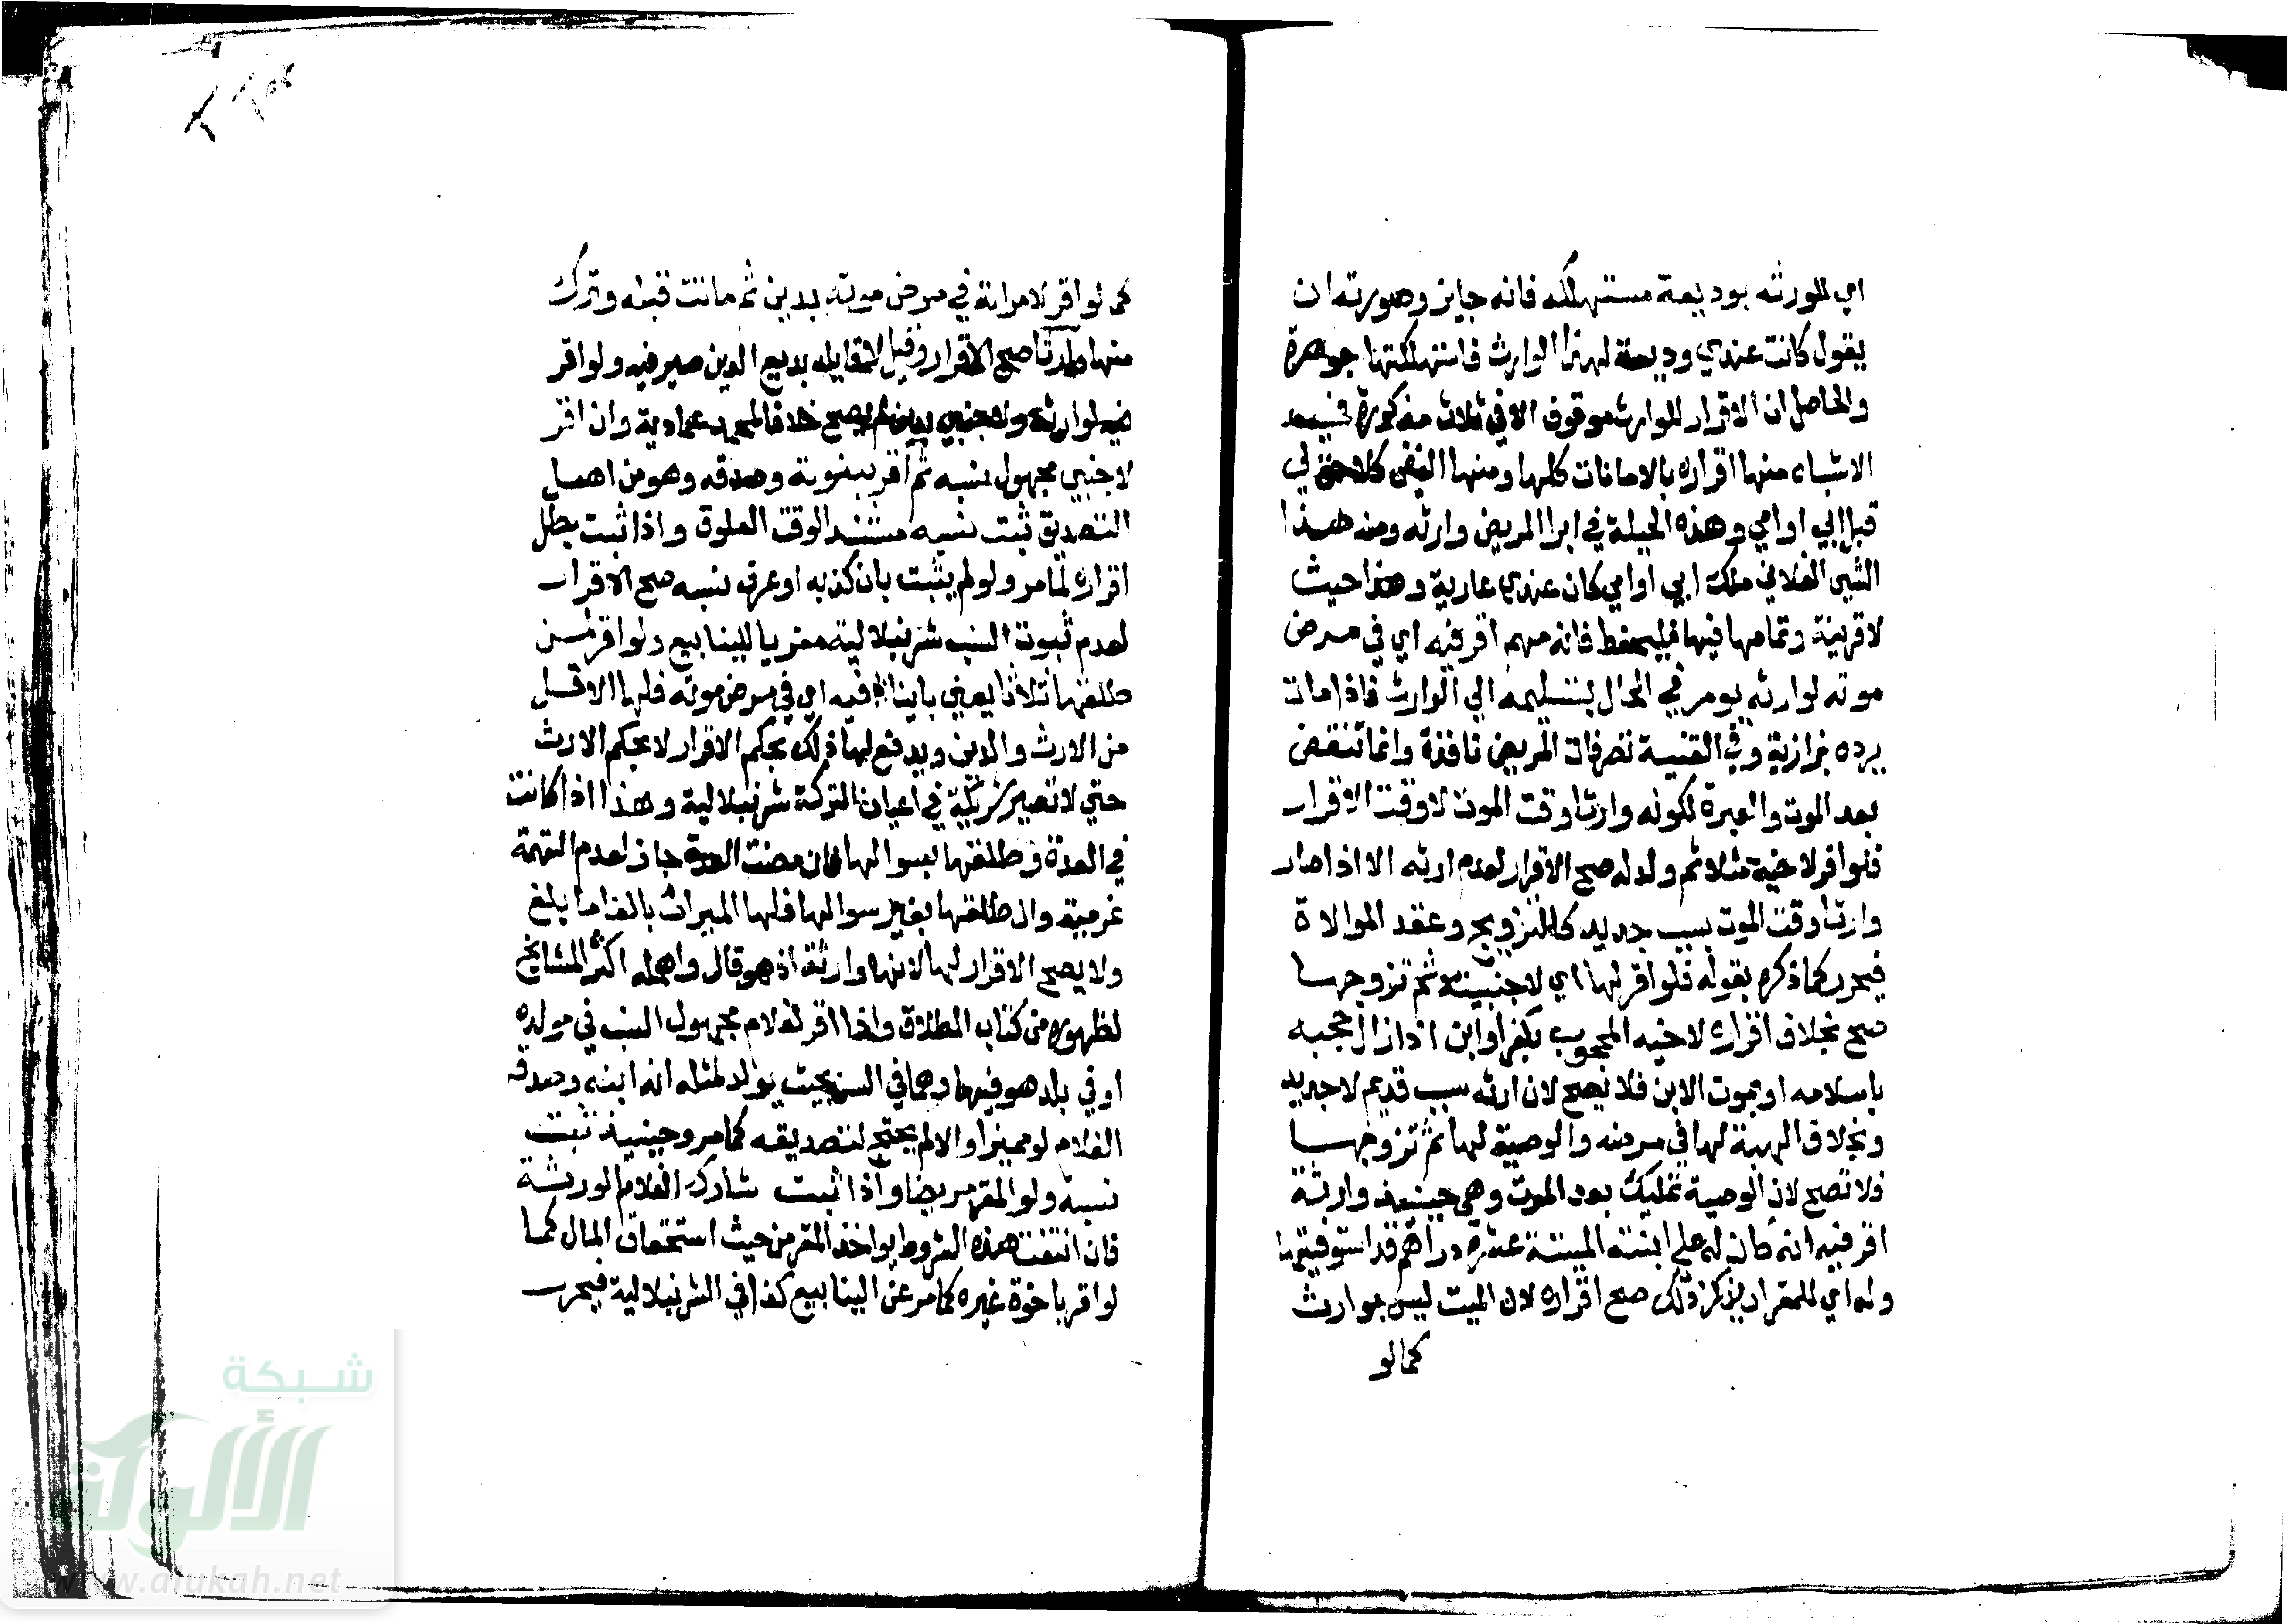 اي لمورثه بوديعة مستهلكه فانه جايز وصورته ان
يقول كانت عندي وديعة لهذا الوارث فاستهلكتها جوهرة
والحاصل ان الاقرار للوارث موقوف الا في ثلاث مذكورة في
الاشباه منها اقراره بالامانات كلها ومنها النفي كلا حق لي
قبل ابي او امي وهذه الحيلة في ابرا المريض وارثه ومنه هذا
الشي الفلاني ملك ابي او امي كان عندي عارية وهذا حيث
لا قرينة وتمامها فيها فليحفظ فانه مهم اقر فيه اي في مرض
موته لوارثه يومر في الحال بتسليمه الي الوارث فاذا مات
يرده بزازية وفي القنية تصرفات المريض نافذة وانما تنتقض
بعد الموت والعبرة لكونه وارثا وقت الموت لا وقت الاقرار
فلو اقر لاخيه مثلا ثم ولد له صح الاقرار لعدم ارثه الا اذا صار
وارثا وقت الموت بسبب جديد كالتزويج وعقد الموالاة
فيحرر كما ذكره بقوله فلو اقر لها اي لاجنبية ثم تزوجها
صح بخلاف اقراره لاخيه المحجوب بكفر او ابن اذا زال حجبه
باسلامه او بموت الابن فلا يصح لان ارثه بسبب قديم لا جديد
وبخلاف الهبة لها في مرضه والوصية لها ثم تزوجها
فلا تصح لان الوصية تمليك بعد الموت وهي حينيذ وارثة
اقر فيه انه كان له علي ابنته الميتة عشرة دراهم قد استوفيتها
وله اي للمقر ابن ينكر ذلك صح اقراره لان الميت ليس بوارث
كما لو
كما لو اقر لامراته في مرض موته بدين ثم ماتت قبله وترك
منها وارثا صح الاقرار وقيل لا قايله بديع الدين صيرفيه ولو اقر
فيه لوارثه ولاجنبي بدين لم يصح خلافا لمحمد عمادية وان اقر
لاجنبي مجهول نسبه ثم اقر ببنوته وصدقه وهو من اهل
التصديق ثبت نسبه مستندا لوقت العلوق واذا ثبت بطل
اقراره لما مر ولو لم يثبت بان كذبه او عرف نسبه صح الاقرار
لعدم ثبوت النسب شرنبلالية معزيا للينابيع ولو اقر لمن
طلقها ثلاثا يعني باينا فيه اي في مرض موته فلها الاقل
من الارث والدين ويدفع لها ذلك بحكم الاقرار لا بحكم الارث
حتي لا تصير شريكة في اعيان التركة شرنبلالية وهذا اذا كانت
في العدة وطلقها بسوالها فان مضت العدة جاز لعدم التهمة
عزمية وان طلقها بغير سوالها فلها الميراث بالغا ما بلغ
ولا يصح الاقرار لها لانها وارثة اذ هو فار واهمله اكثر المشايخ
لظهوره من كتاب الطلاق وان اقر لغلام مجهول النسب في مولده
او في بلد هو فيها وهما في السن بحيث يولد لمثله انه ابنه وصدقه
الغلام لو مميزا والا لم يحتج لتصديقه كما مر وحينيذ ثبت
نسبه ولو المقر مريضا واذا ثبت شارك الغلام الورثة
فان انتفت هذه الشروط يواخذ المقر من حيث استحقاق المال كما
لو اقر باخوة غيره كما مر عن الينابيع كذا في الشرنبلالية فيحرر
شبكة
الألوكة
www.alukah.net